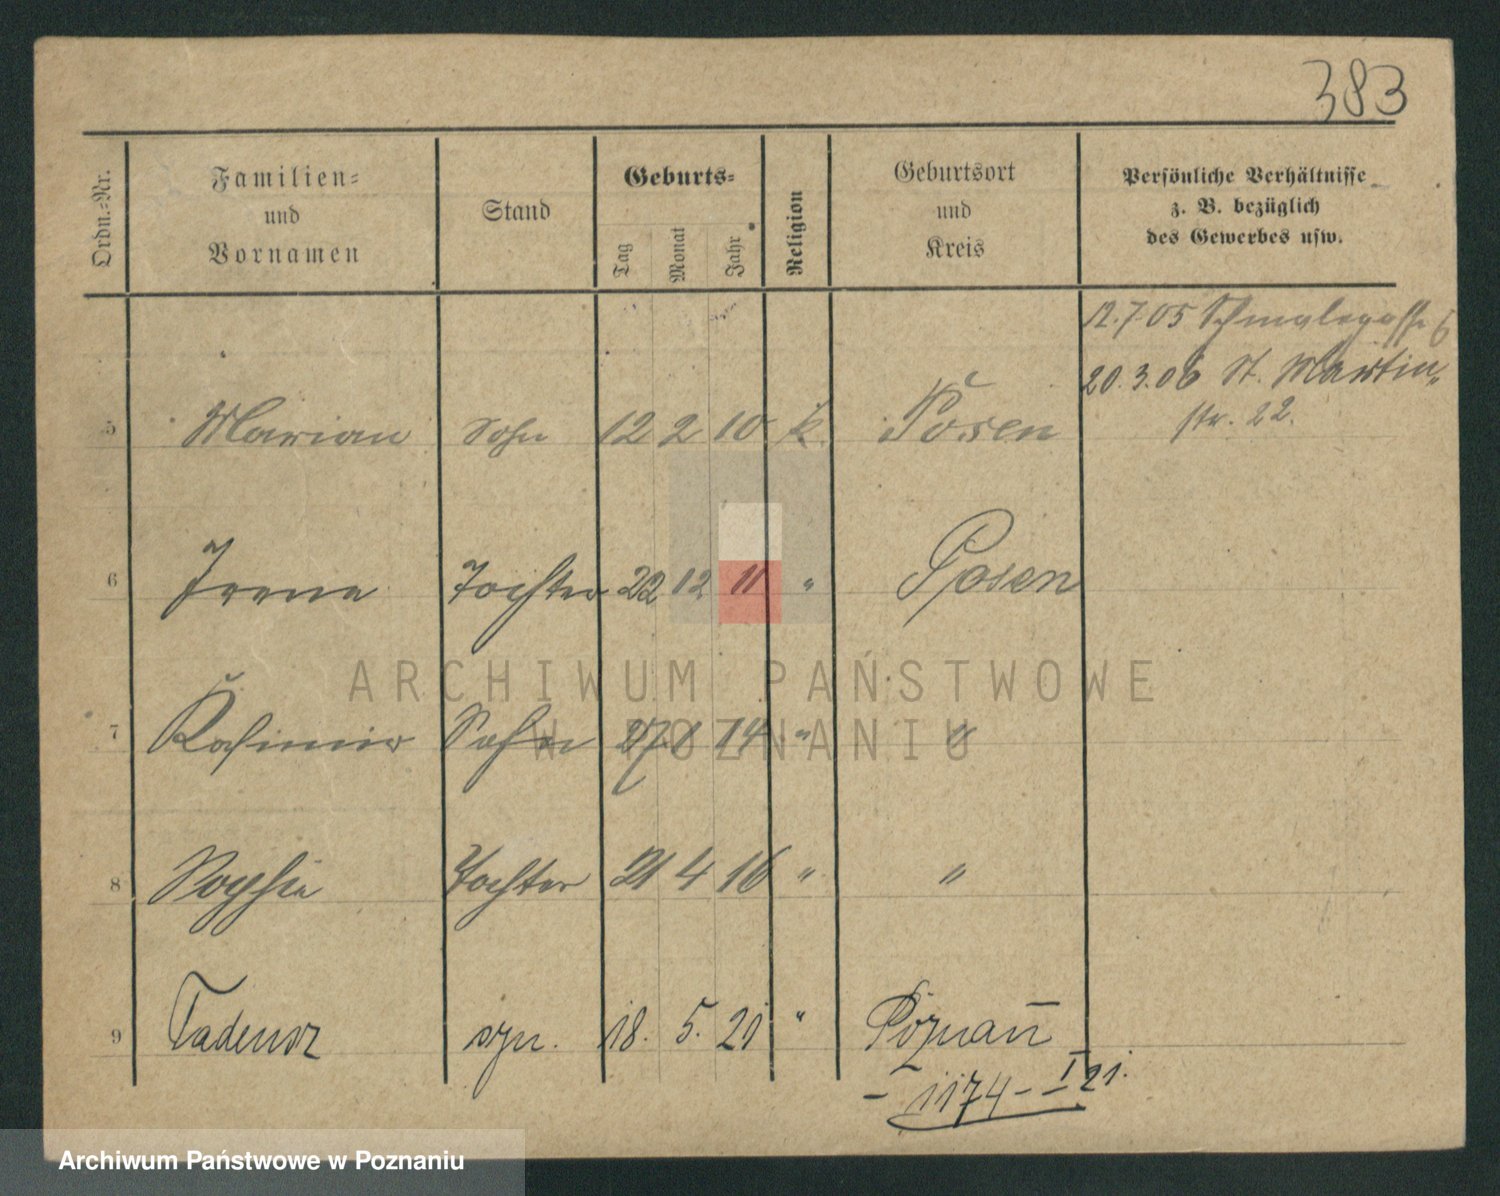 383
Ordn.-Nr.
Familien-
und
Vornamen
Stand
Geburts-
Tag
Monat
Jahr
Religion
Geburtsort
und
Kreis
Persönliche Verhältnisse
z. B. bezüglich
des Gewerbes usw.
12.7.05 Schmalegasse 6
20.3.06 St. Martin-
str. 22.
5 Marian Sohn 12 2 10 k. Posen
6 Irene Tochter 22 12 11 " Posen
ARCHIWUM PAŃSTWOWE
W POZNANIU
7 Kasimir Sohn 27 1 14 " "
8 Sophie Tochter 21 4 16 " "
9 Tadeusz syn. 18. 5. 21 " Poznań
- 1174 - I 21.
Archiwum Państwowe w Poznaniu